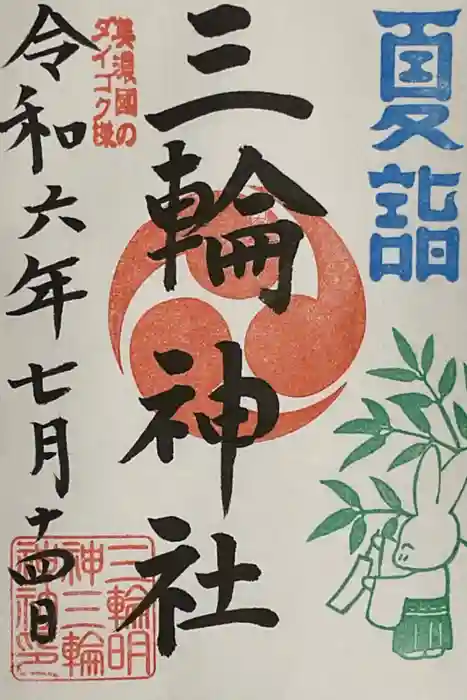 夏詣
三輪神社
美濃國の
ダイコク様
令和六年七月十四日
三輪明
神三輪